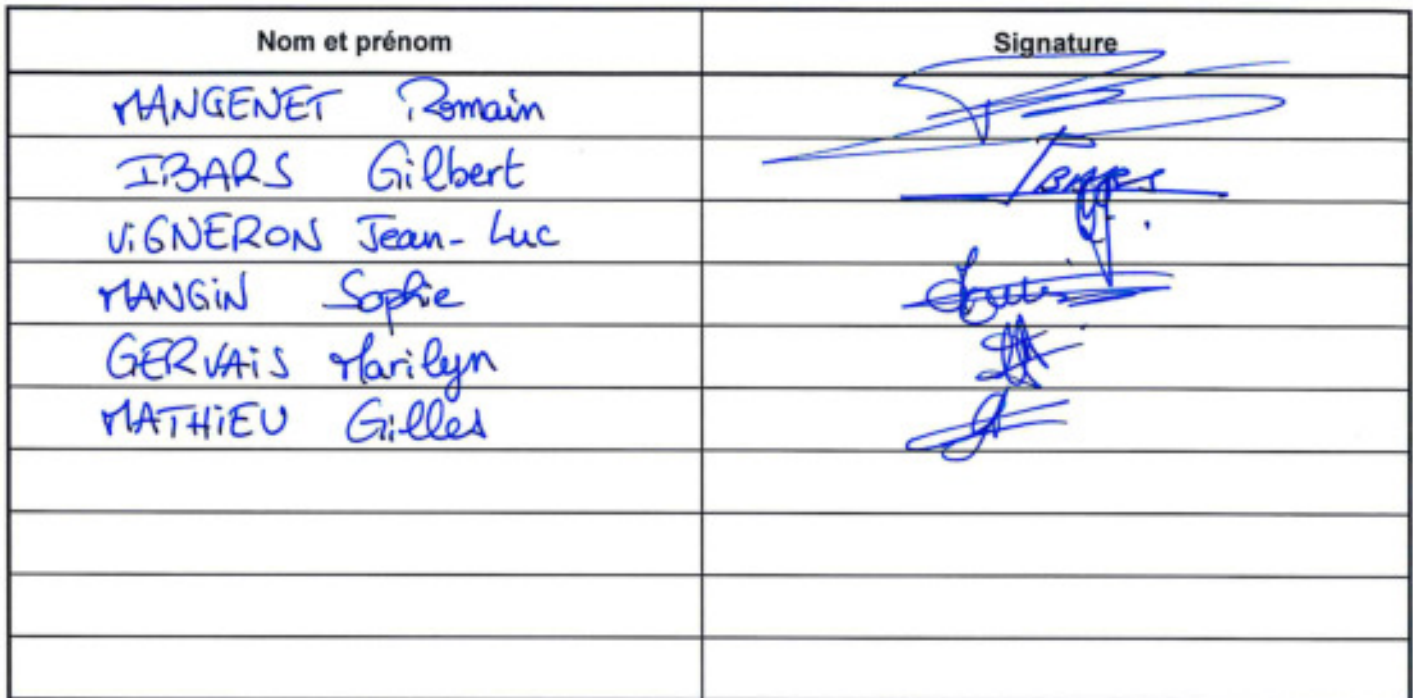 Nom et prénom Signature
MANGENET Romain
IBARS Gilbert IBARS
ViGNERON Jean-Luc
MANGiN Sophie
GERVAiS Marilyn
MATHiEU Gilles